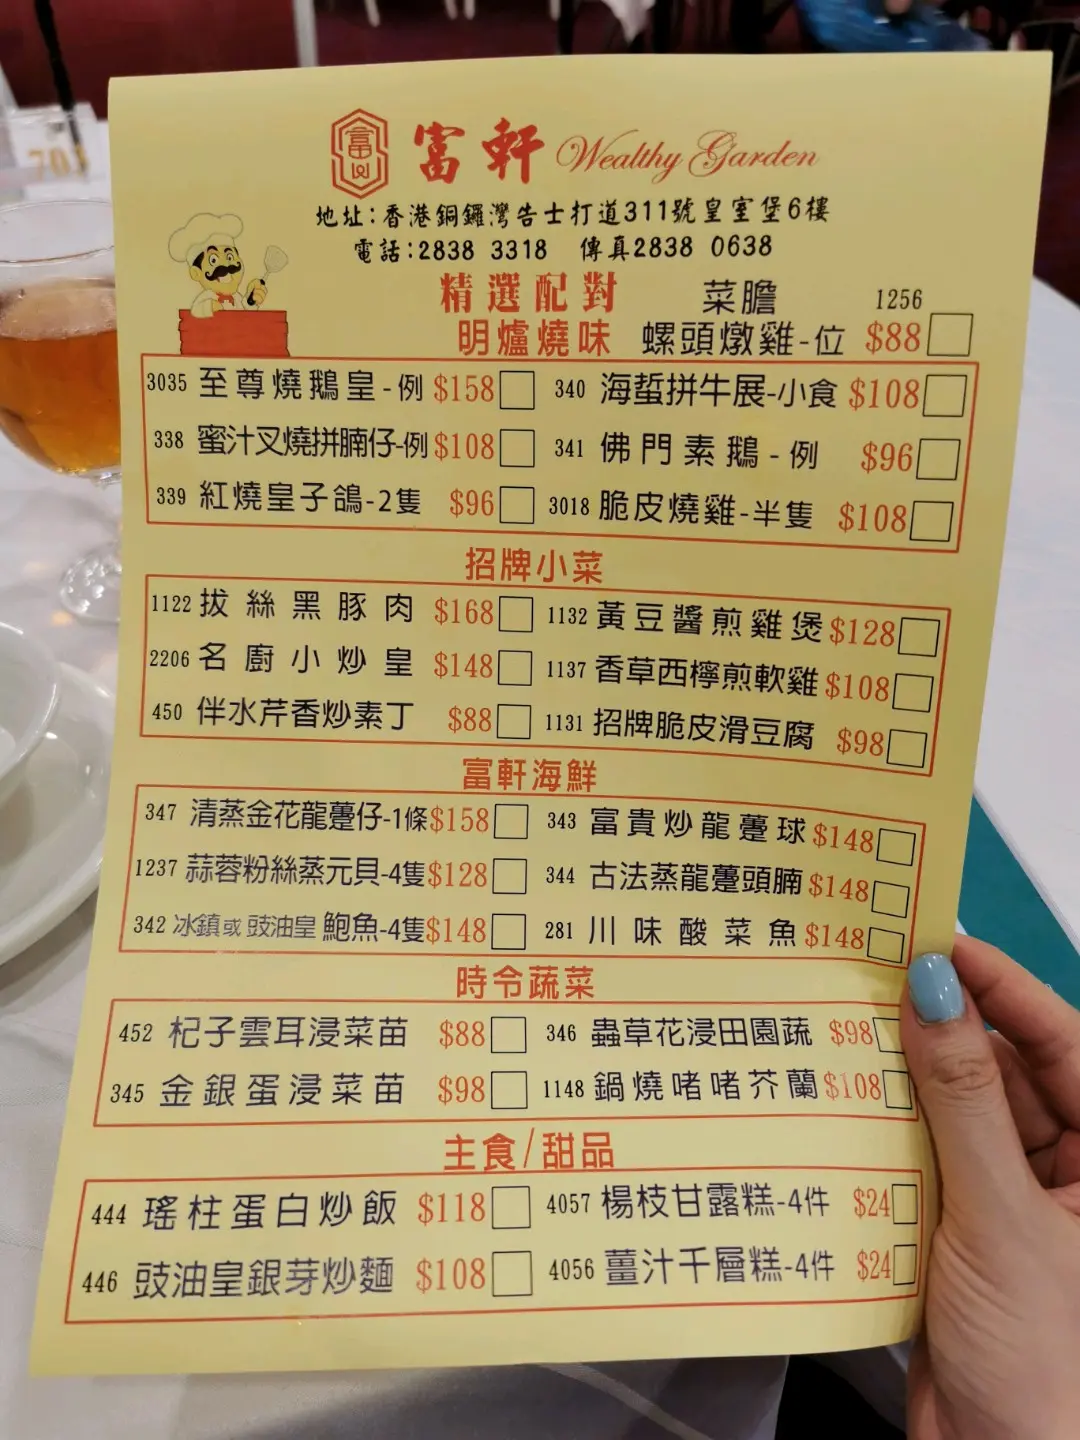 富軒 Wealthy Garden
地址:香港銅鑼灣告士打道311號皇室堡6樓
電話:2838 3318 傳真2838 0638
精選配對 菜膽 1256
明爐燒味 螺頭燉雞-位 $88
3035 至尊燒鵝皇-例 $158 340 海蜇拼牛展-小食 $108
338 蜜汁叉燒拼腩仔-例 $108 341 佛門素鵝-例 $96
339 紅燒皇子鴿-2隻 $96 3018 脆皮燒雞-半隻 $108
招牌小菜
1122 拔絲黑豚肉 $168 1132 黃豆醬煎雞煲 $128
2206 名廚小炒皇 $148 1137 香草西檸煎軟雞 $108
450 伴水芹香炒素丁 $88 1131 招牌脆皮滑豆腐 $98
富軒海鮮
347 清蒸金花龍躉仔-1條 $158 343 富貴炒龍躉球 $148
1237 蒜蓉粉絲蒸元貝-4隻 $128 344 古法蒸龍躉頭腩 $148
342 冰鎮或豉油皇鮑魚-4隻 $148 281 川味酸菜魚 $148
時令蔬菜
452 杞子雲耳浸菜苗 $88 346 蟲草花浸田園蔬 $98
345 金銀蛋浸菜苗 $98 1148 鍋燒啫啫芥蘭 $108
主食/甜品
444 瑤柱蛋白炒飯 $118 4057 楊枝甘露糕-4件 $24
446 豉油皇銀芽炒麵 $108 4056 薑汁千層糕-4件 $24